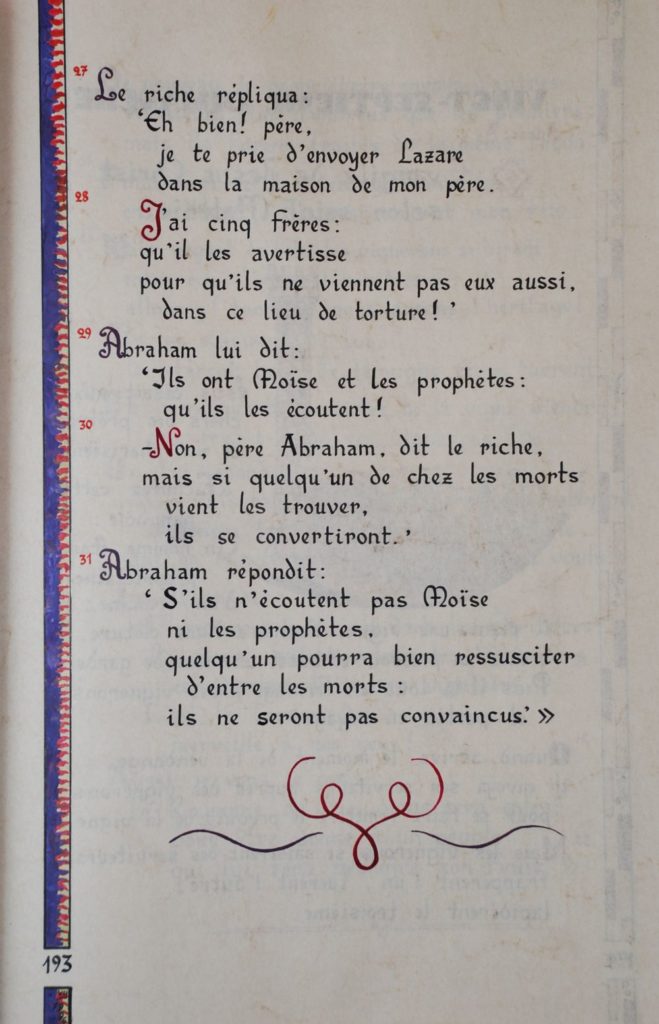 27
Le riche répliqua:
‘Eh bien! père,
je te prie d'envoyer Lazare
dans la maison de mon père.
28
J'ai cinq frères:
qu'il les avertisse
pour qu'ils ne viennent pas eux aussi,
dans ce lieu de torture! ’
29
Abraham lui dit:
‘Ils ont Moïse et les prophètes:
qu'ils les écoutent!
30
-Non, père Abraham, dit le riche,
mais si quelqu'un de chez les morts
vient les trouver,
ils se convertiront.’
31
Abraham répondit:
‘ S'ils n'écoutent pas Moïse
ni les prophètes,
quelqu'un pourra bien ressusciter
d'entre les morts:
ils ne seront pas convaincus.’ »
193